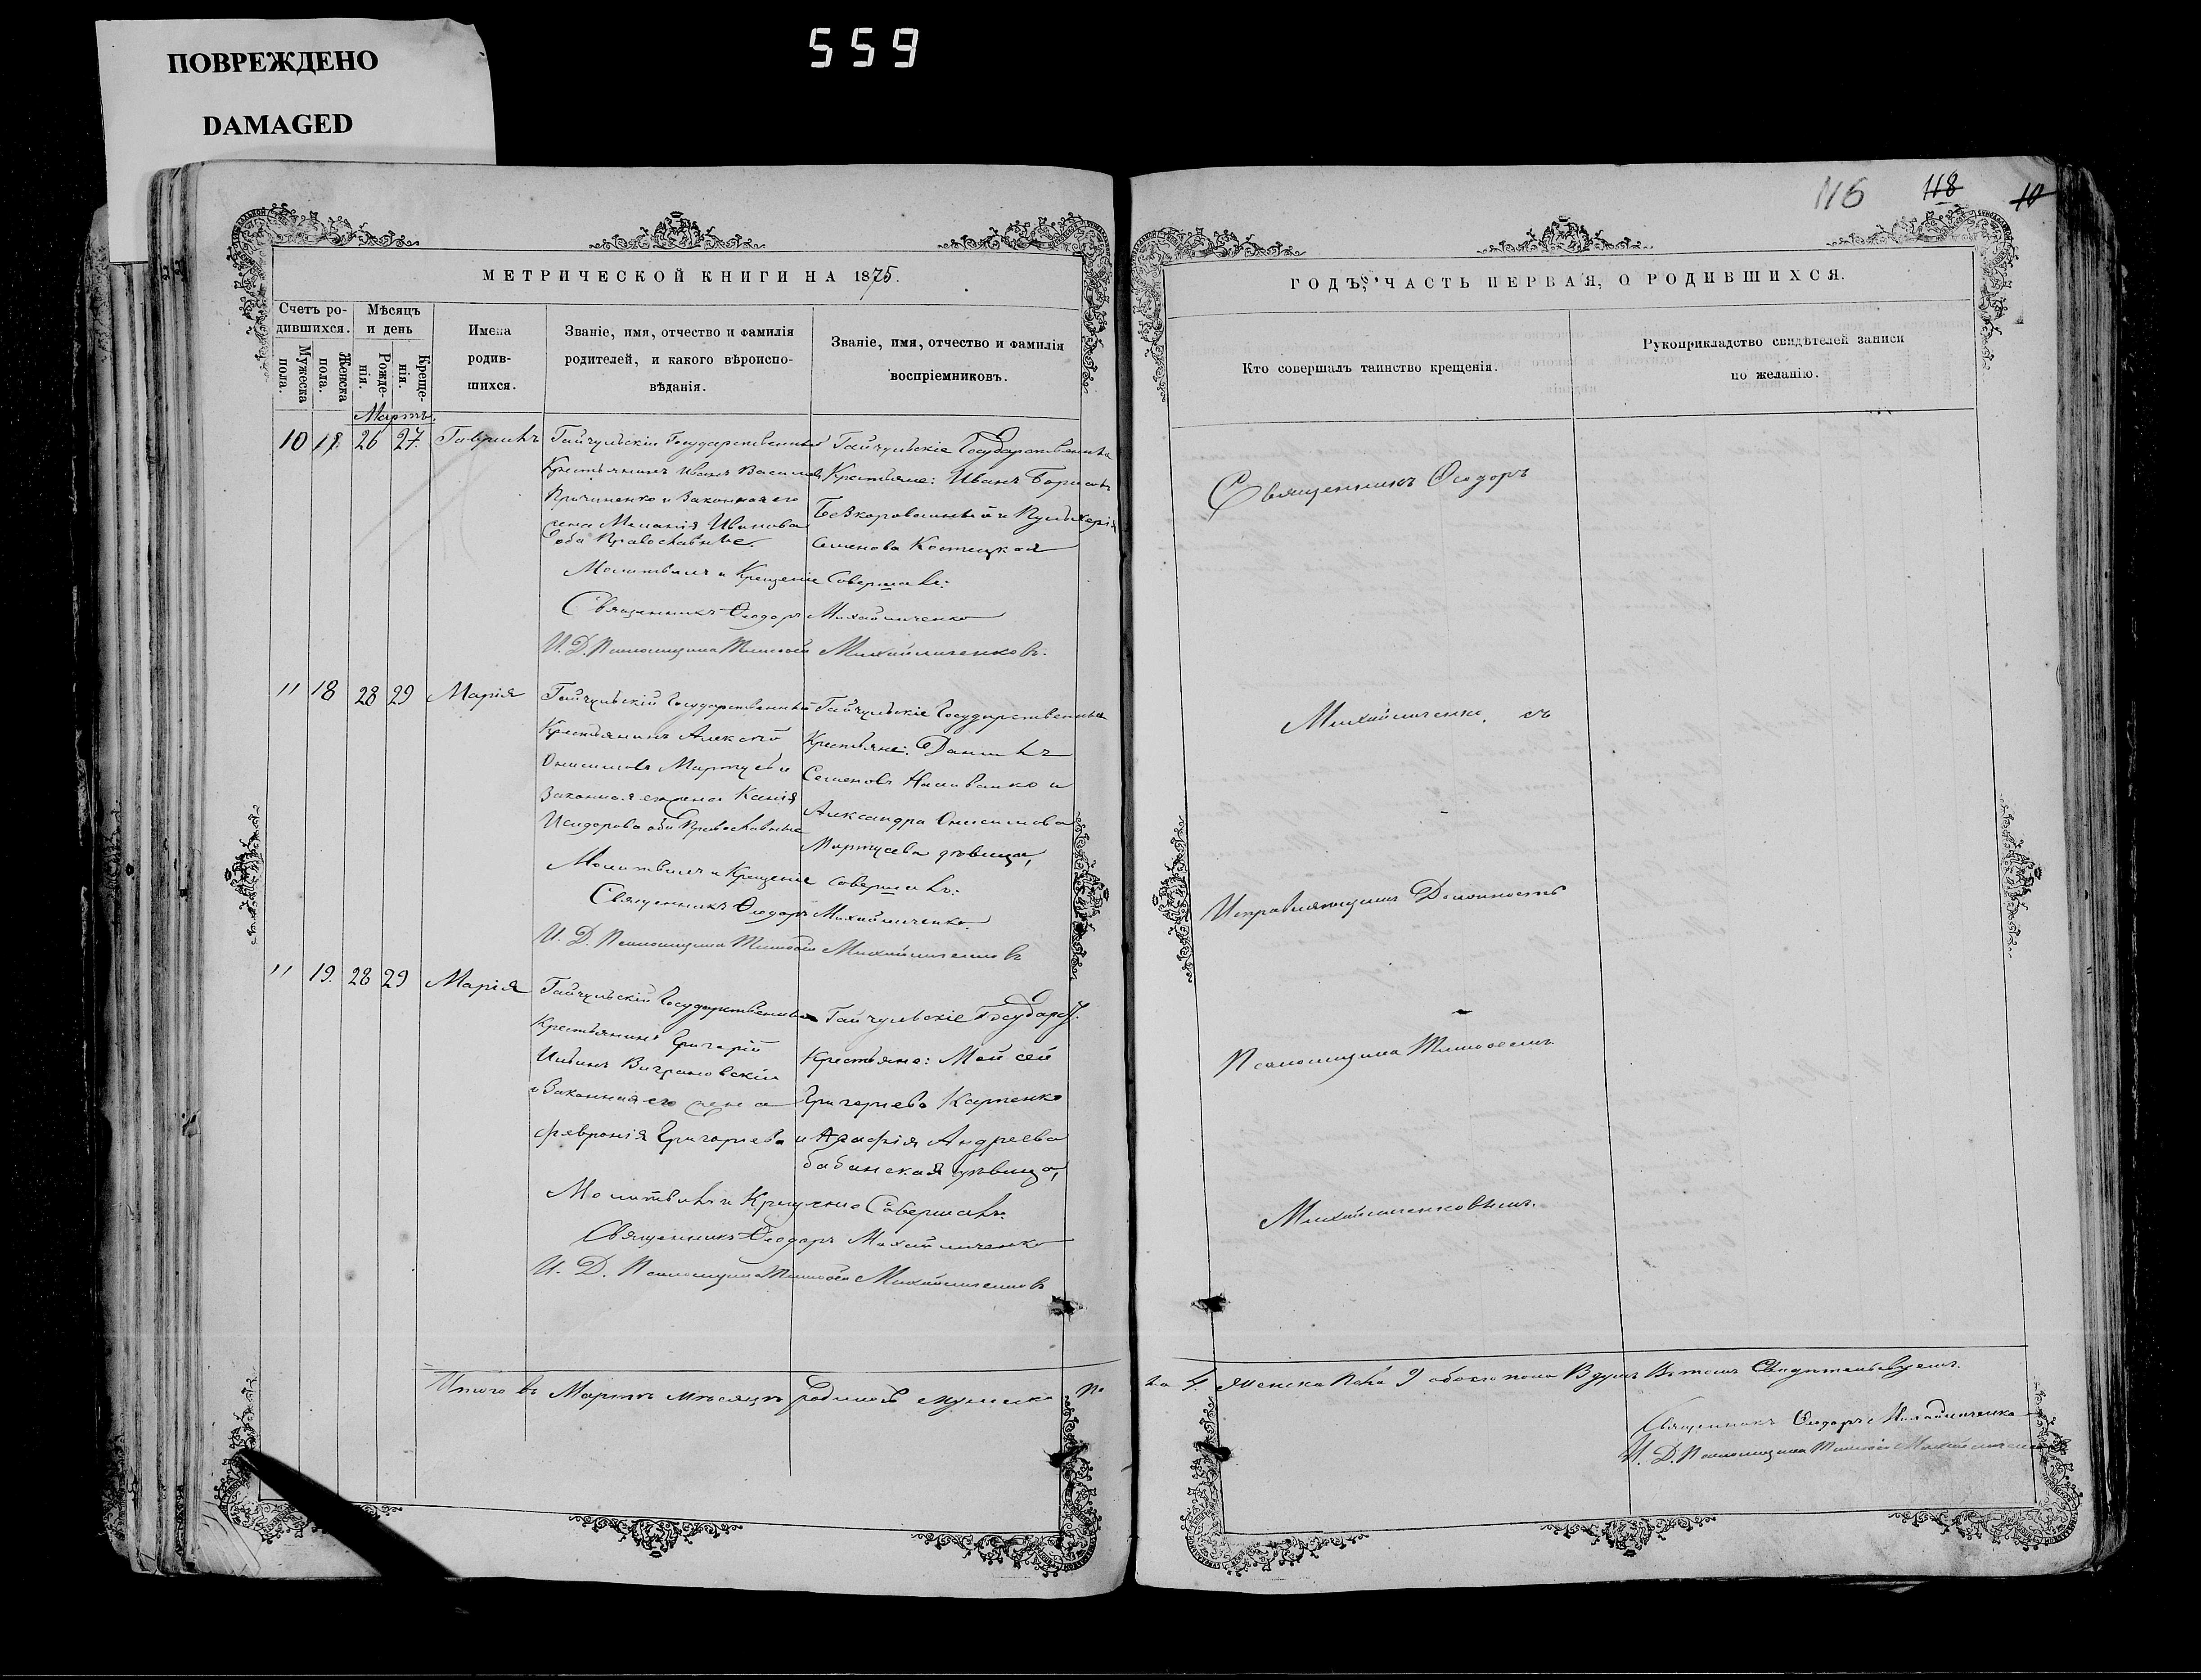 559
ПОВРЕЖДЕНО
DAMAGED
МЕТРИЧЕСКОЙ КНИГИ НА 1875.
Счетъ родившихся.
Мужеска пола.
Женска пола.
Мѣсяцъ и день
Рожденія.
Крещенія.
Имена родившихся.
Званіе, имя, отчество и фамилія родителей, и какого вѣроисповѣданія.
Званіе, имя, отчество и фамилія воспріемниковъ.
Мартъ.
10 26 27 Гавріилъ
Гайчульскій Государственный
Крестьянинъ Иванъ Васильевъ
и Законная его
жена Меланія Иванова
оба Православные.
Гайчульскіе Государственные
Крестьяне: Иванъ Борисовъ
и Пульхерія
Семенова Костецкая
Молитвилъ и Крещеніе Совершалъ:
Священникъ Ѳеодоръ Михайличенко
И. Д. Псаломщика Тимофей Михайличенковъ.
11 18 28 29 Марія
Гайчульскій Государственный
Крестьянинъ Алексѣй
Онисимовъ Мартусь и
Законная жена Ксенія
Исидорова оба Православные
Гайчульскіе Государственные
Крестьяне: Даніилъ
Семеновъ Наливайко и
Александра Онисимова
Мартусева дѣвица,
Молитвилъ и Крещеніе совершалъ:
Священникъ Ѳеодоръ Михайличенко.
И. Д. Псаломщика Тимофей Михайличенковъ
11 19. 28 29 Марія
Гайчульскій Государственный
Крестьянинъ Григорій
и Законная его жена
Февронія Григорьева
Гайчульскіе Государ.
Крестьяне: Мойсей
Григорьевъ Карпенко
и Агафія Андреева
бабанская дѣвица,
Молитвилъ и Крещеніе Совершалъ:
Священникъ Ѳеодоръ Михайличенко
И. Д. Псаломщика Тимофей Михайличенковъ
Итого въ Мартѣ мѣсяцѣ родилось мужеска по
116 118 10
ГОДЪ, ЧАСТЬ ПЕРВАЯ, О РОДИВШИХСЯ.
Кто совершалъ таинство крещенія.
Рукоприкладство свидѣтелей записи по желанію.
Священникъ Ѳеодоръ
Михайличенко, съ
Исправляющимъ Должность
Псаломщика Тимофеемъ
Михайличенковымъ.
ла 4. женска пола 9 обоего пола Въ томъ Свидѣтельствуемъ.
Священникъ Ѳеодоръ Михайличенко
И. Д. Псаломщика Тимофей